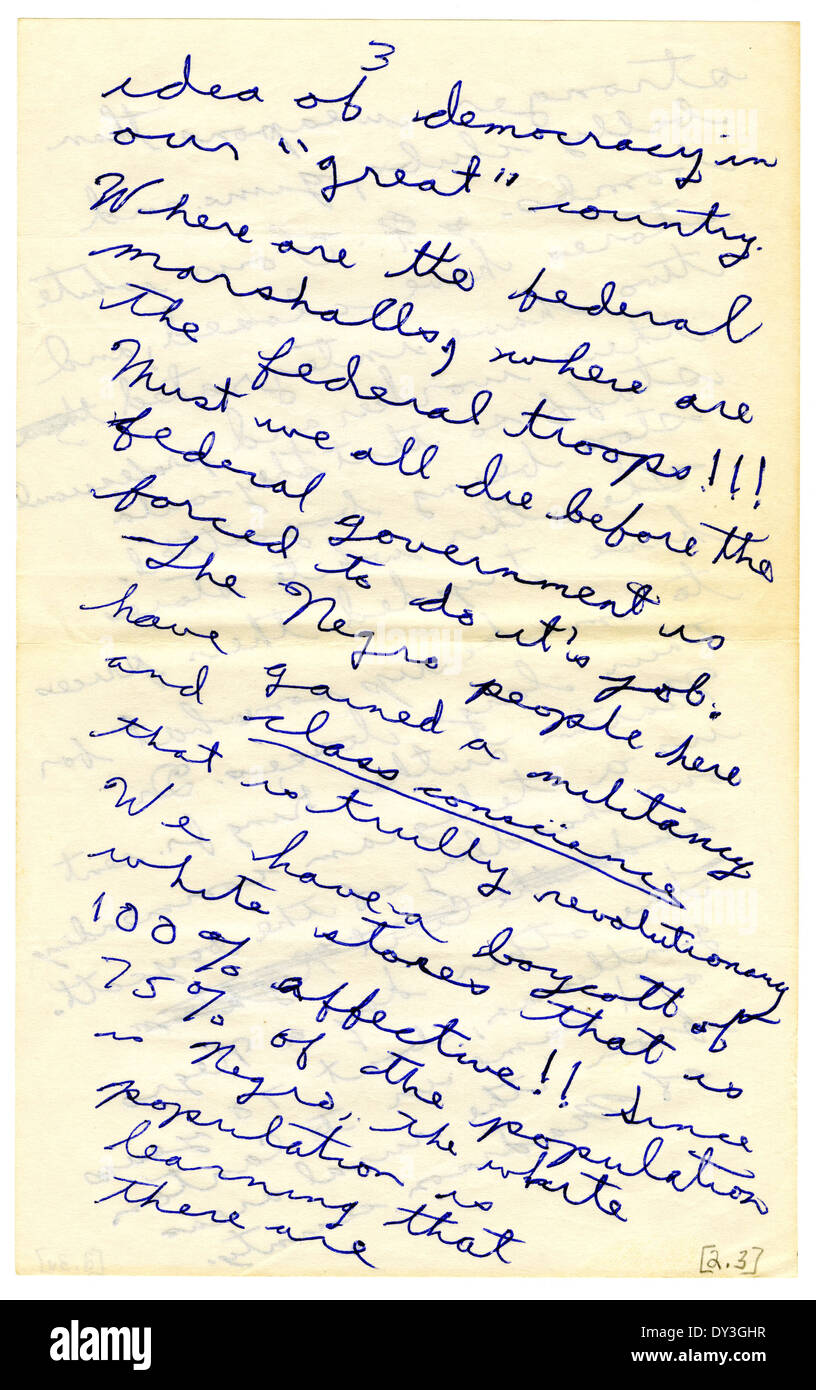 3
idea of democracy in
our "great" country.
Where are the federal
marshalls, where are
the federal troops!!!
Must we all die before the
federal government is
forced to do it's job.
The Negro people here
have gained a militancy
and class conscience
that is trully revolutionary
We have a boycott of
white stores that is
100% affective!! Since
75% of the population
is Negro, the white
population is
learning that
there are
[2.3]
alamy
Image ID: DY3GHR
www.alamy.com